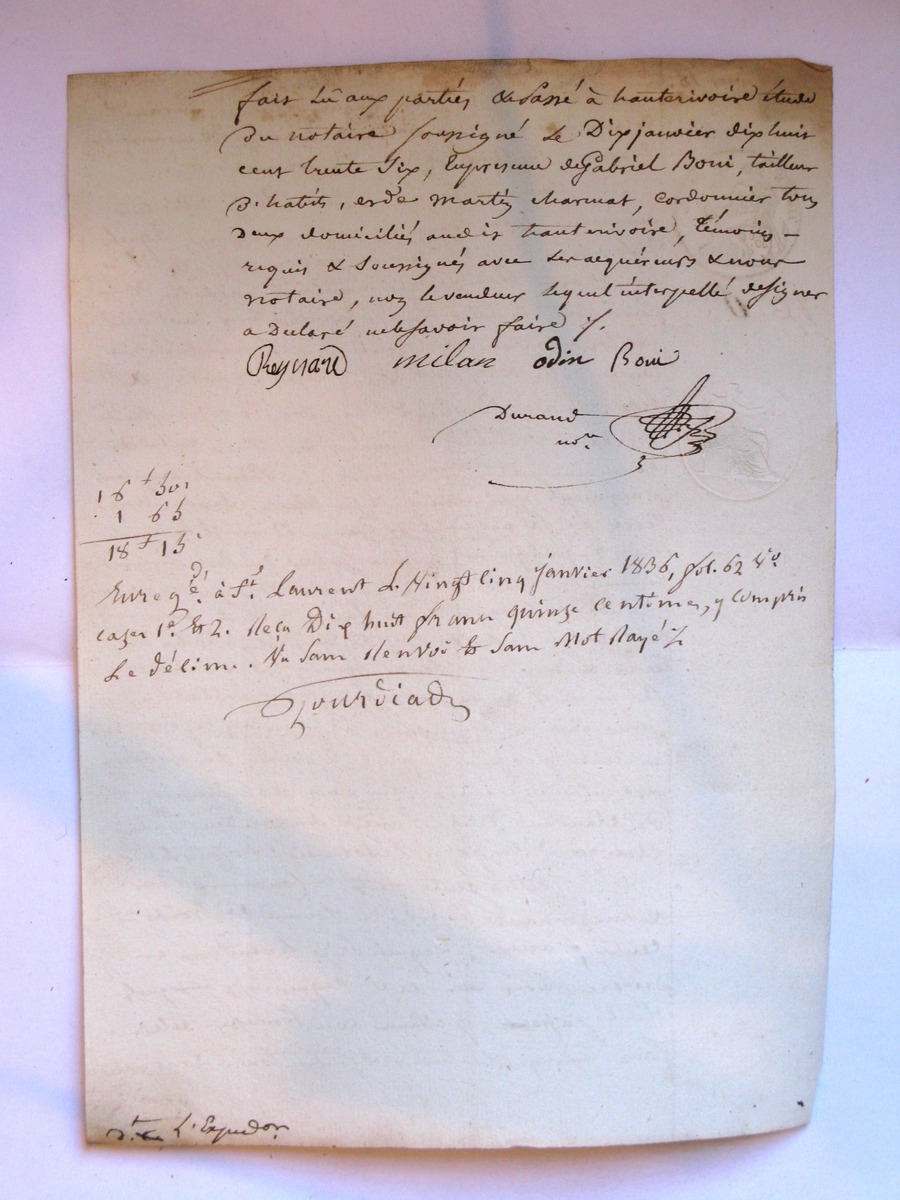 fait Lû aux parties & Passé à hauterivoire étude
Du notaire soussigné Le Dix janvier dix huit
cent trente Six, En presence de Gabriel Boni, tailleur
D'habits, et de martin charmat, cordonnier tous
Deux domiciliés audit hauterivoire, témoins
requis & Soussignés avec Les acquéreurs & nous
notaire, non le vendeur Lequel interpellé de Signer
a Déclaré ne le Savoir faire ./.
Reynard milan odin Boni
Durand
nore
16 f 50
1 65
18 f 15
Enregé à St Laurent Le Vingt Cinq janvier 1836, fol. 62 Vo
cases 1re & 2. Reçu Dix huit francs quinze centimes, y compris
Le délime. Vu Sans Renvoi & Sans Mot Rayé ./.
L'Expedon